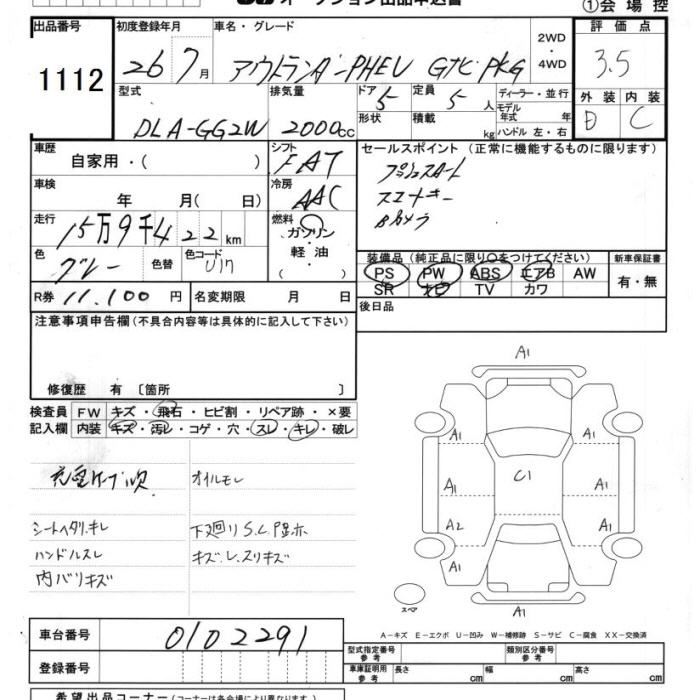 オークション出品申込書
①会場控
出品番号 1112
初度登録年月 26 7月
車名・グレード アウトランダーPHEV Gナビ PKG
2WD・4WD
評価点 3.5
外装 D 内装 C
型式 DLA-GG2W
排気量 2000cc
ドア 5
形状
定員 5人
積載 kg
ディーラー・並行
モデル年式 年
ハンドル 左・右
車歴 自家用・( )
シフト FAT
車検 年 月( 日)
冷房 AAC
走行 15万9千422km
燃料 ガソリン・軽油・( )
色 グレー 色替 色コード U17
R券 11,100円 名変期限 月 日
セールスポイント (正常に機能するものに限ります)
プッシュスタート
スマートキー
Bカメラ
装備品 (純正品に限り○をつけてください)
PS PW ABS エアB AW
SR ナビ TV カワ
新車保証書 有・無
後日品
注意事項申告欄 (不具合内容等は具体的に記入して下さい)
修復歴 有 〔箇所 〕
検査員記入欄
FW キズ・飛石・ヒビ割・リペア跡・×要
内装 キズ・汚レ・コゲ・穴・スレ・キレ・破レ
充電ケーブル欠
オイルモレ
シートヘタリ、キレ
下廻りS.C.
ハンドルスレ
キズ、
内バリキズ
A1
A1 A1
C1
A1 A1
A2 A1
A1
スペア
A-キズ E-エクボ U-凹み W-補修跡 S-サビ C-腐食 XX-交換済
車台番号 0102291
登録番号
型式指定番号 参考 類別区分番号 参考
車庫証明用 参考 長さ cm 幅 cm 高さ cm
希望出品コーナー